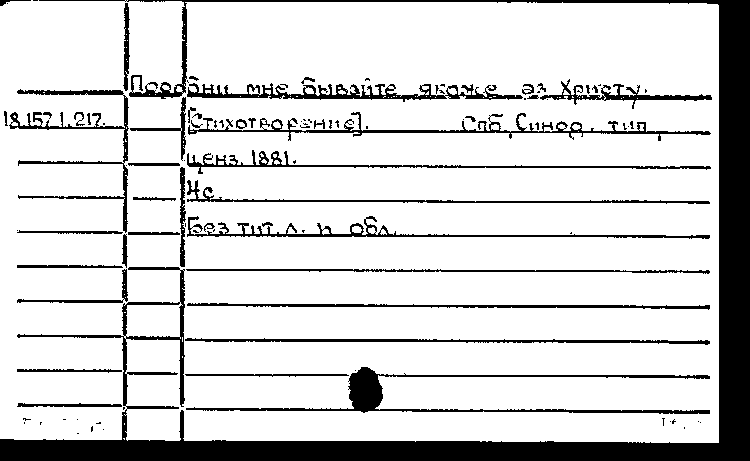 Подобни мне бывайте, якоже аз Христу.
18.157.1.217. [Стихотворение]. Спб, Синод. тип.,
ценз. 1881.
4с.
Без тит. л. и обл.